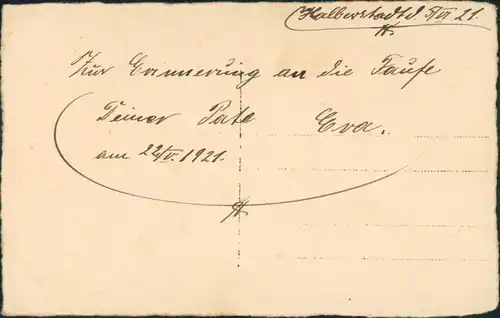 Halberstadt d. 5/VI. 21.
Zur Erinnerung an die Taufe
Deiner Pate Eva.
am 22/V. 1921.